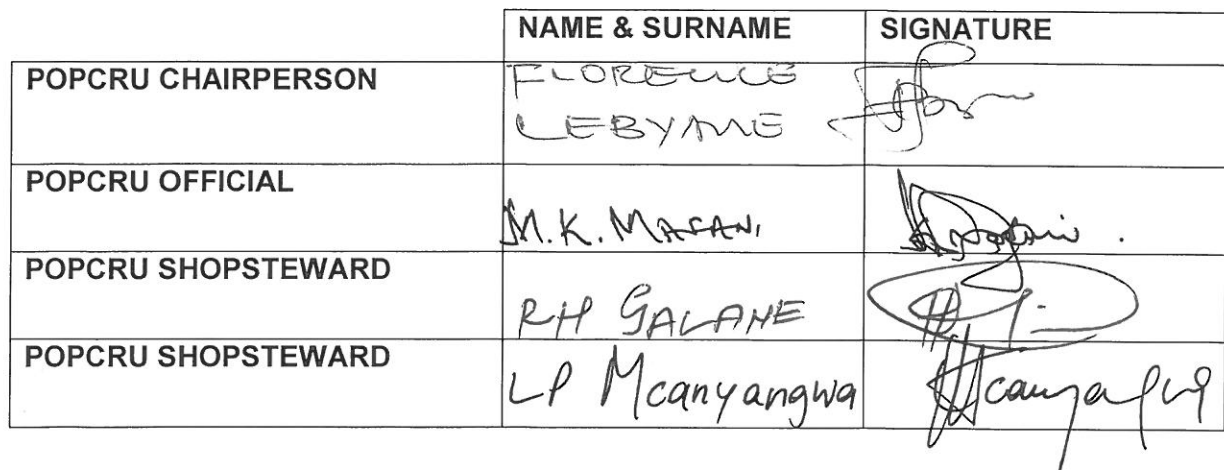 NAME & SURNAME SIGNATURE
POPCRU CHAIRPERSON FLORENCE
LEBYANE
POPCRU OFFICIAL
M.K. MAFANI
POPCRU SHOPSTEWARD
RH GALANE
POPCRU SHOPSTEWARD
LP Mcanyangwa